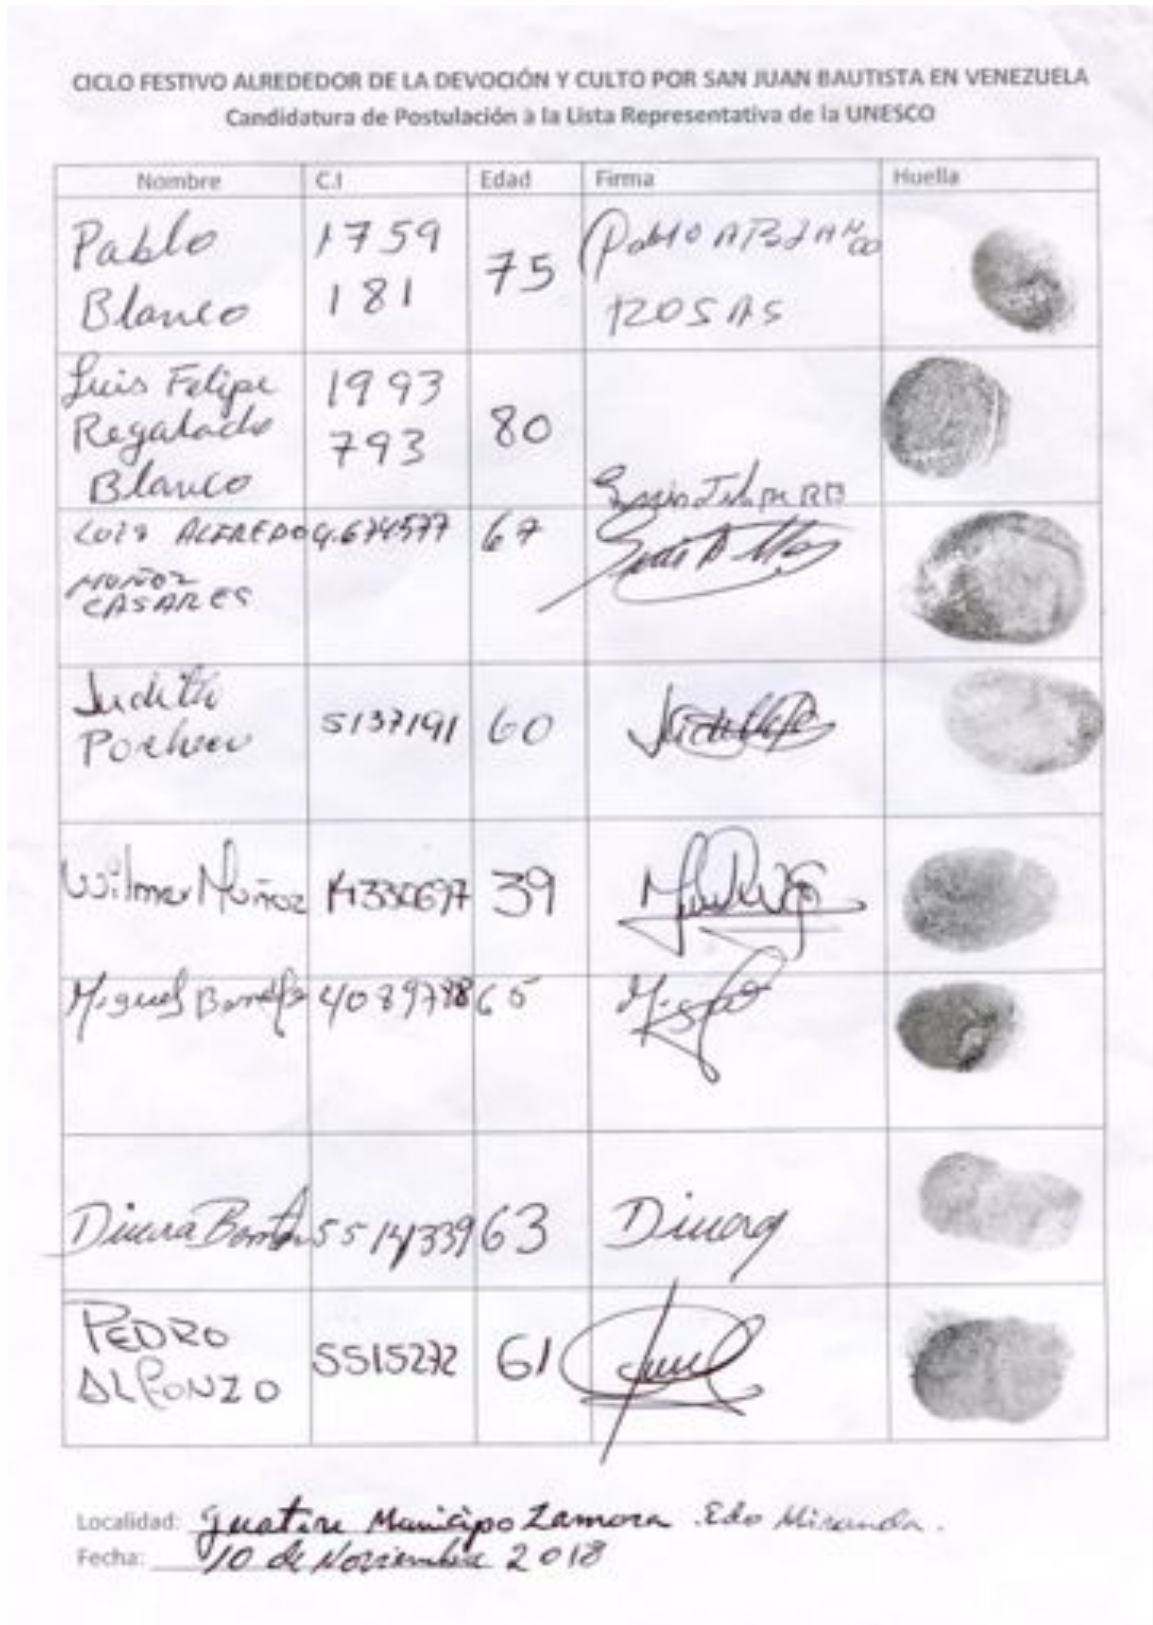 CICLO FESTIVO ALREDEDOR DE LA DEVOCIÓN Y CULTO POR SAN JUAN BAUTISTA EN VENEZUELA
Candidatura de Postulación a la Lista Representativa de la UNESCO
Nombre C.I Edad Firma Huella
Pablo 1759 Pablo
Blanco 181 75 ROSAS
Luis Felipe 1993
Regalado 793 80
Blanco
LUIS ALFREDO 4.674577 67
MUÑOZ
CASARES
Judith
Pacheco 5137191 60
Wilmer Muñoz 14330697 39
Miguel 4089788 65
Dinora 5514339 63 Dinora
PEDRO
ALFONZO 5515272 61
Localidad: Guatire Municipo Zamora. Edo Miranda.
Fecha: 10 de Noviembre 2018